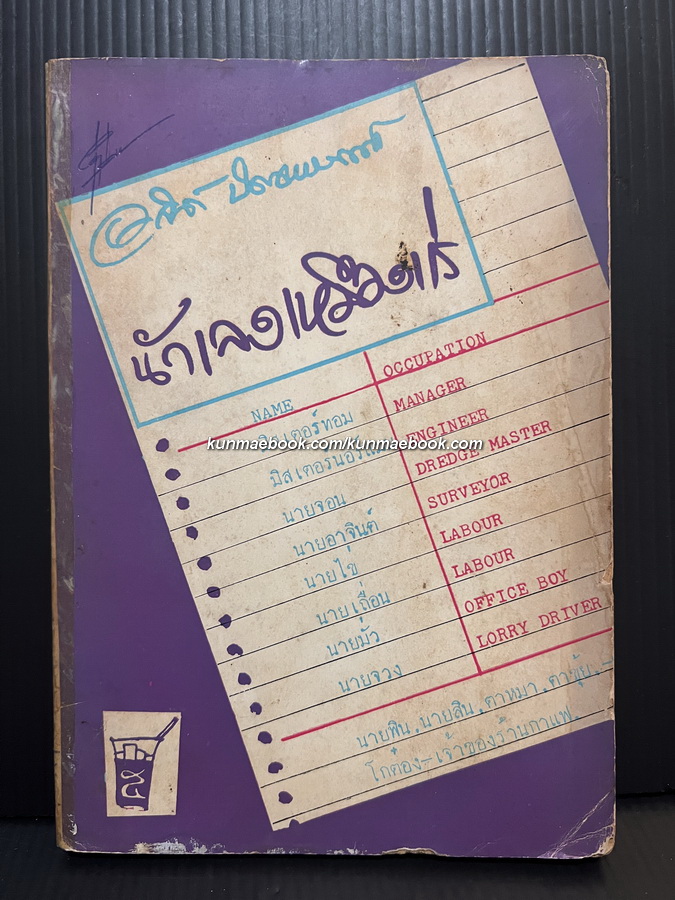 อาจินต์ ปัญจพรรค์
นักเลงเหมืองแร่
NAME OCCUPATION
มิสเตอร์ทอม MANAGER
มิสเตอร์นอร์แมน ENGINEER
นายจอน DREDGE MASTER
นายอาจินต์ SURVEYOR
นายไข่ LABOUR
นายเถื่อน LABOUR
นายมั่ว OFFICE BOY
นายจวง LORRY DRIVER
นายพิน, นายสิน, ตาหมา, ตาทุ้ย, –
โกต๋อง – เจ้าของร้านกาแฟ.
kunmaebook.com/kunmaebook.com